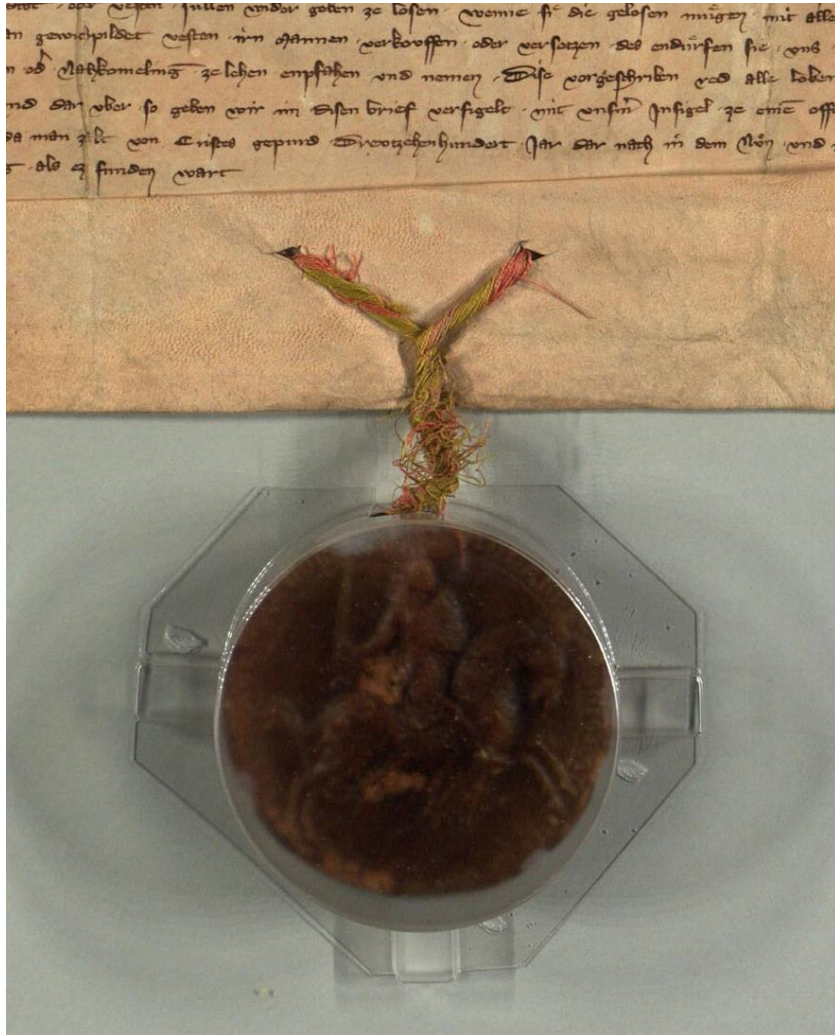 oder vesten süllen wider geben ze losen wenne si die gelosen mügen mit alle
an gewichpildet vesten irn Mannen verkouffen oder versetzen des endürfen sie uns
n od' Nahkomeling ze lehen enpfahen und nemen Dise vorgeschriben red alle loben
nd dar vber so geben wir in disen brief versigelt mit vnserm Insigel ze eine offe
da man zelt von Cristes gepurd Drevtzehenhundert Jar dar nach in dem Nön und
als er funden wart